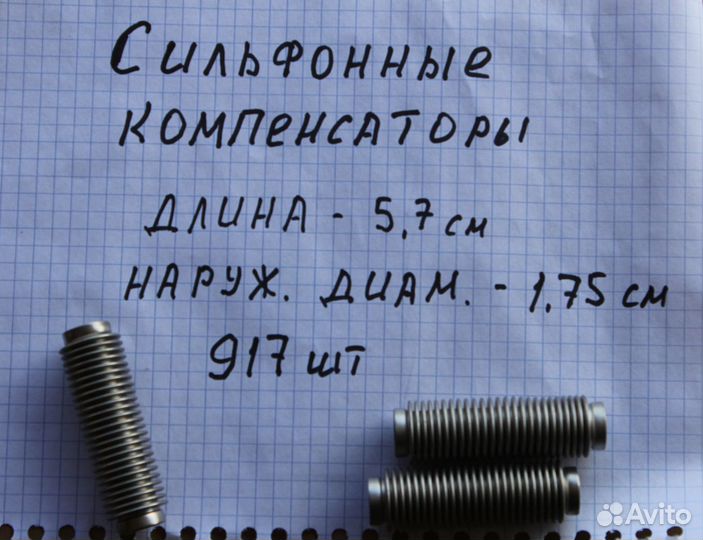 Сильфонные
компенсаторы
длина - 5,7 см
наруж. диам. - 1,75 см
917 шт
Avito